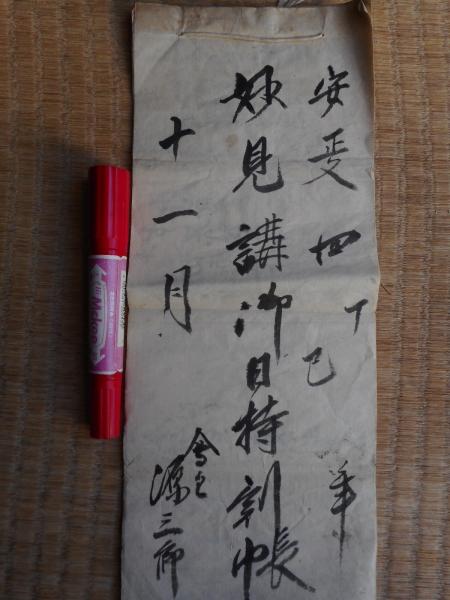 安政四丁巳年
妙見講御日待割帳
十一月
會主
源三郎